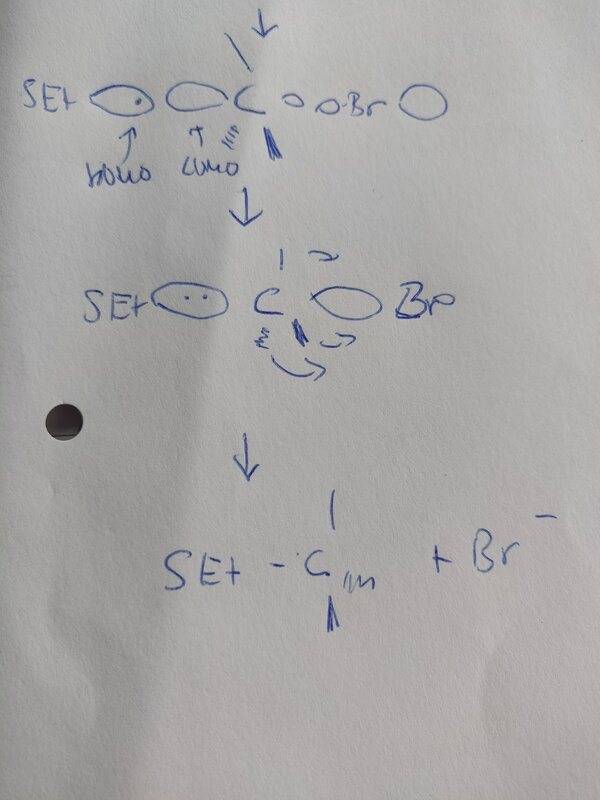 SEt C Br
HOMO LUMO
SEt C Br
SEt - C + Br -